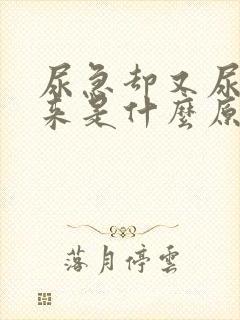 尿急却又尿
来是什麼原
落月停雲